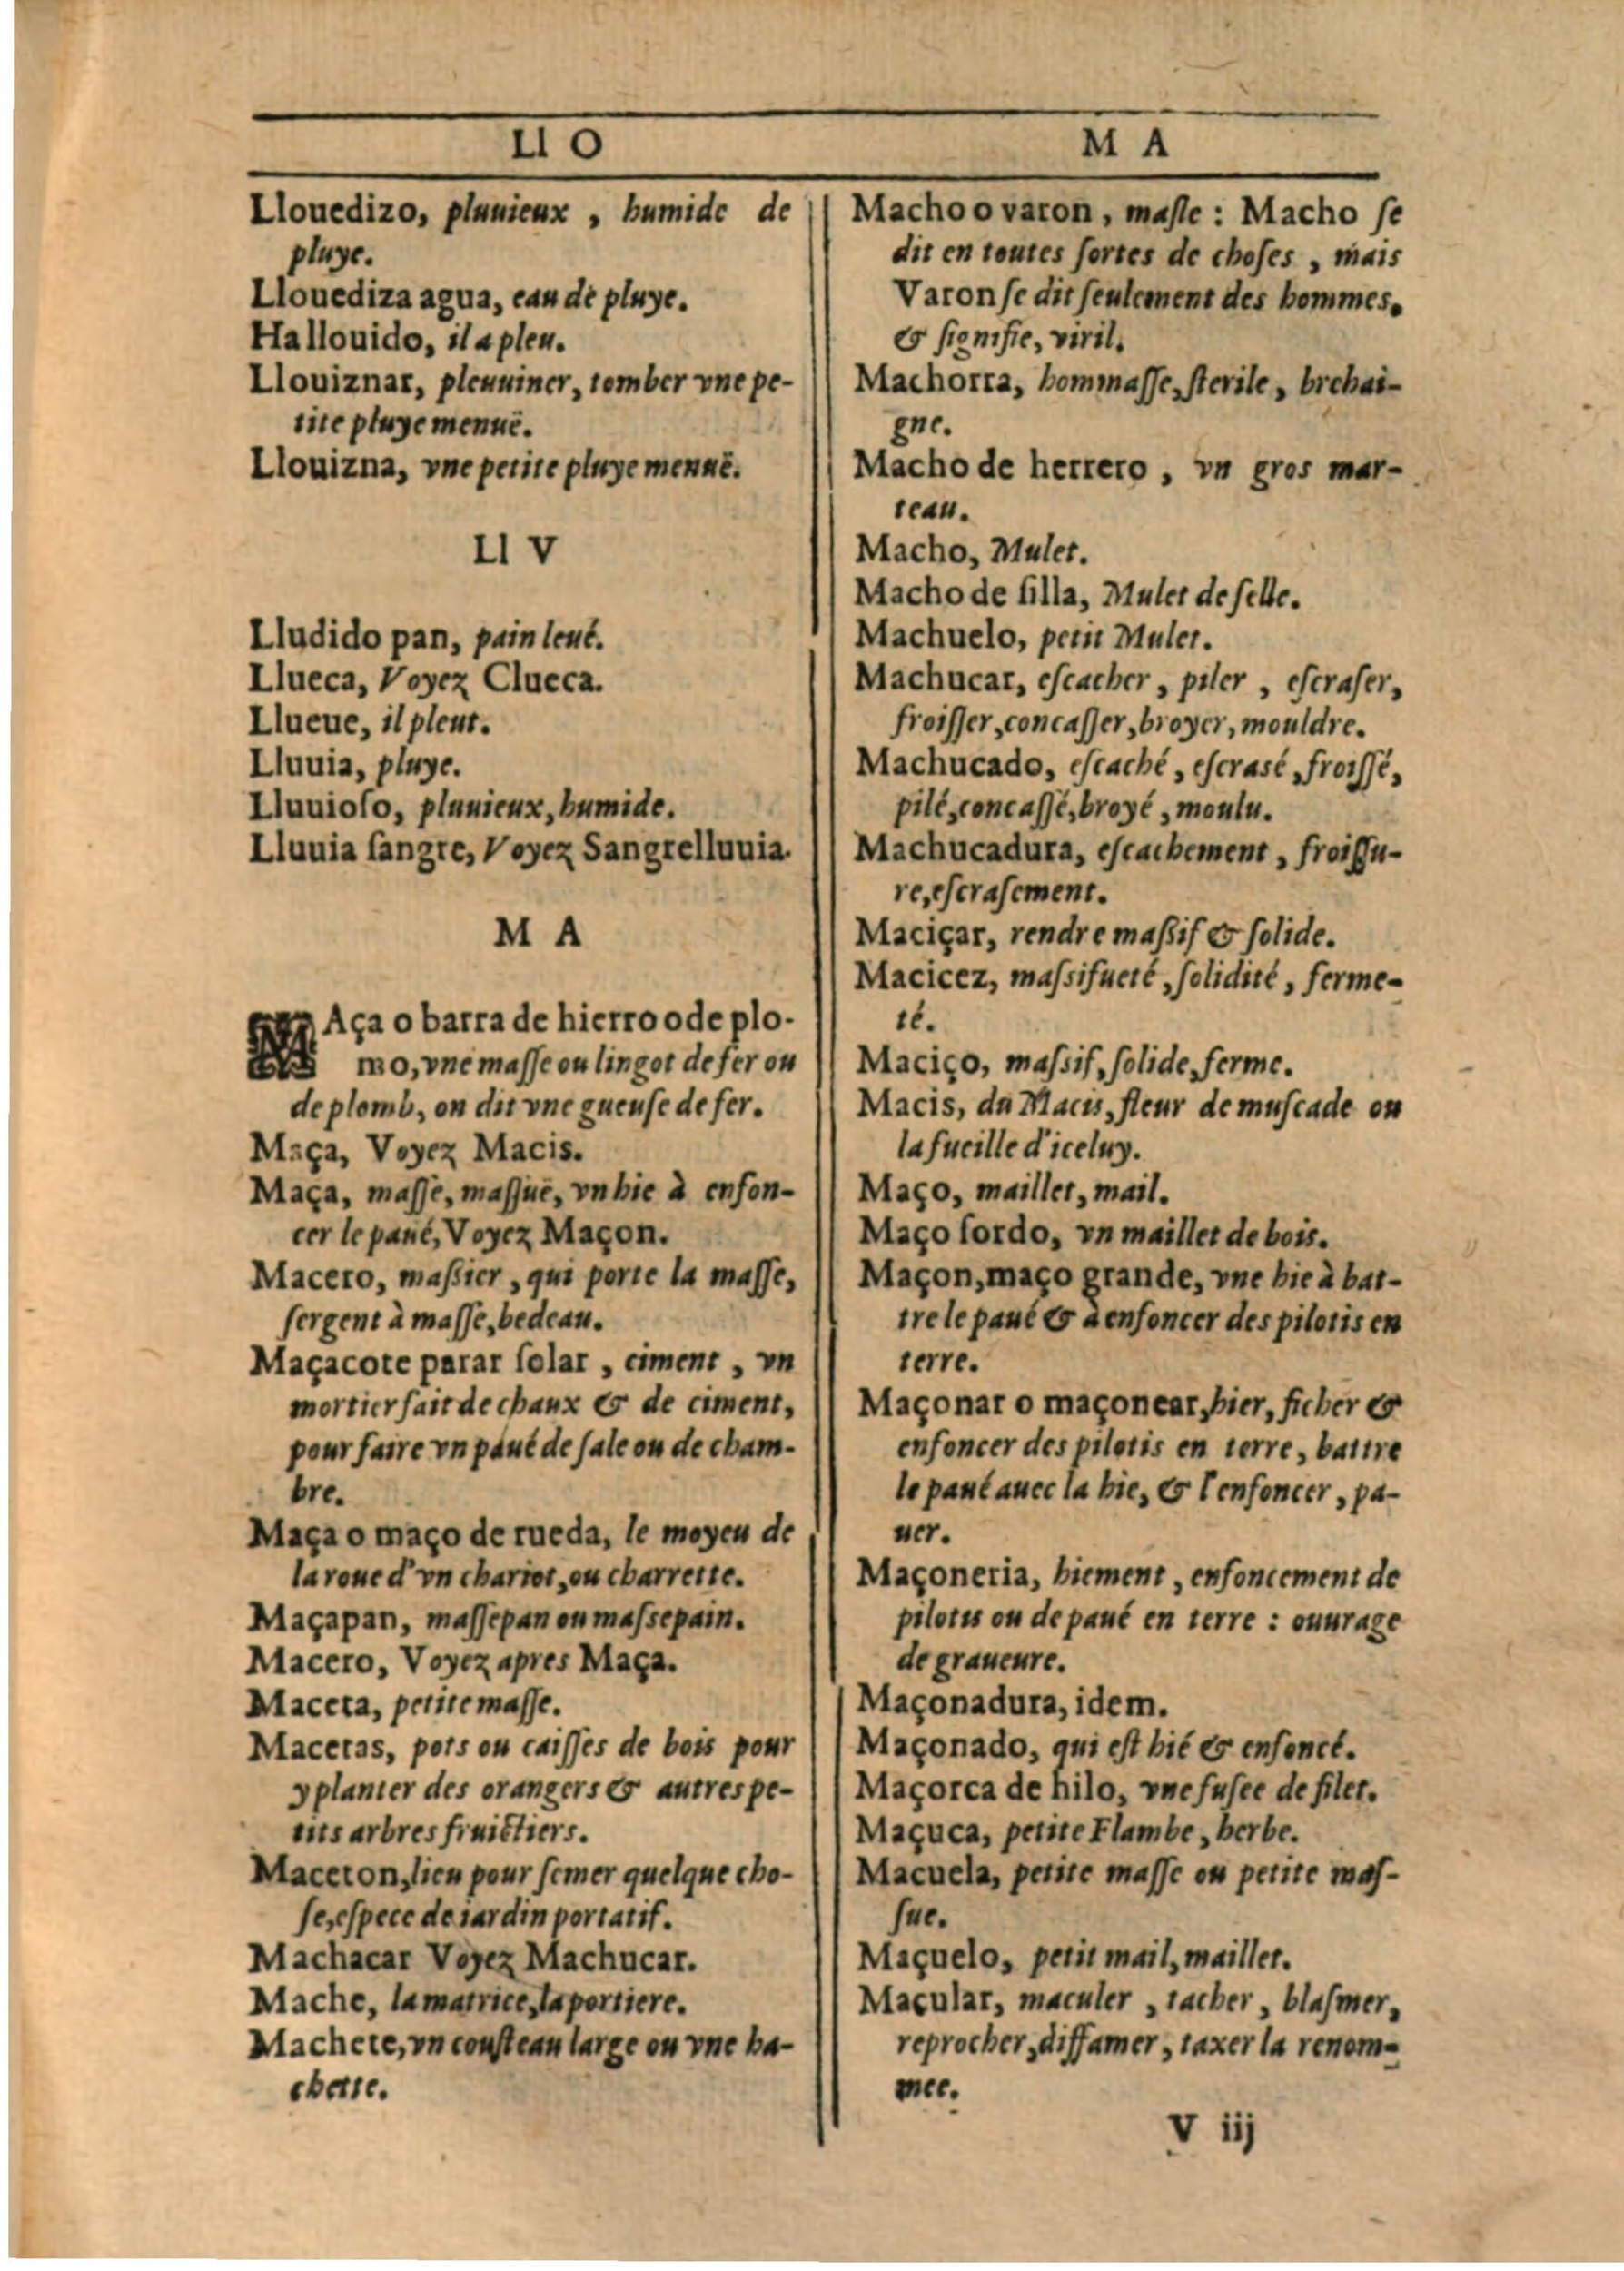 Ll O
Llouedizo, pluuieux, humide de
pluye.
Llouediza agua, eau de pluye.
Ha llouido, il a pleu.
Llouiznar, pleuuiner, tomber vne pe-
tite pluye menuë.
Llouizna, vne petite pluye menuë.
Ll V
Lludido pan, pain leué.
Llueca, Voyez Clueca.
Llueue, il pleut.
Lluuia, pluye.
Lluuioſo, pluuieux, humide.
Lluuia ſangre, Voyez Sangrelluuia.
M A
MAça o barra de hierro o de plo-
mo, vne maſſe ou lingot de fer ou
de plomb, on dit vne gueuſe de fer.
Maça, Voyez Macis.
Maça, maſſe, maſſuë, vn hie à enfon-
cer le paué, Voyez Maçon.
Macero, maſsier, qui porte la maſſe,
ſergent à maſſe, bedeau.
Maçacote parar ſolar, ciment, vn
mortier fait de chaux & de ciment,
pour faire vn paué de ſale ou de cham-
bre.
Maça o maço de rueda, le moyeu de
la roue d'vn chariot, ou charrette.
Maçapan, maſſepan ou maſsepain.
Macero, Voyez apres Maça.
Maceta, petite maſſe.
Macetas, pots ou caiſſes de bois pour
y planter des orangers & autres pe-
tits arbres fruictiers.
Maceton, lieu pour ſemer quelque cho-
ſe, eſpece de iardin portatif.
Machacar Voyez Machucar.
Mache, la matrice, la portiere.
Machete, vn couſteau large ou vne ha-
chette.
M A
Macho o varon, maſle : Macho ſe
dit en toutes ſortes de choſes, mais
Varon ſe dit ſeulement des hommes,
& ſignifie, viril.
Machorra, hommaſſe, ſterile, brehai-
gne.
Macho de herrero, vn gros mar-
teau.
Macho, Mulet.
Macho de ſilla, Mulet de ſelle.
Machuelo, petit Mulet.
Machucar, eſcacher, piler, eſcraſer,
froiſſer, concaſſer, broyer, mouldre.
Machucado, eſcaché, eſcrasé, froiſſé,
pilé, concaſſé, broyé, moulu.
Machucadura, eſcachement, froiſſu-
re, eſcraſement.
Maciçar, rendre maſsif & ſolide.
Macicez, maſsifueté, ſolidité, ferme-
té.
Maciço, maſsif, ſolide, ferme.
Macis, du Macis, fleur de muſcade ou
la fueille d'iceluy.
Maço, maillet, mail.
Maço ſordo, vn maillet de bois.
Maçon, maço grande, vne hie à bat-
tre le paué & à enfoncer des pilotis en
terre.
Maçonar o maçonear, hier, ficher &
enfoncer des pilotis en terre, battre
le paué auec la hie, & l'enfoncer, pa-
uer.
Maçoneria, hiement, enfoncement de
pilotis ou de paué en terre : ouurage
de graueure.
Maçonadura, idem.
Maçonado, qui eſt hié & enfoncé.
Maçorca de hilo, vne fuſee de filet.
Maçuca, petite Flambe, herbe.
Macuela, petite maſſe ou petite maſ-
ſue.
Maçuelo, petit mail, maillet.
Maçular, maculer, tacher, blaſmer,
reprocher, diffamer, taxer la renom-
mee.
V iij